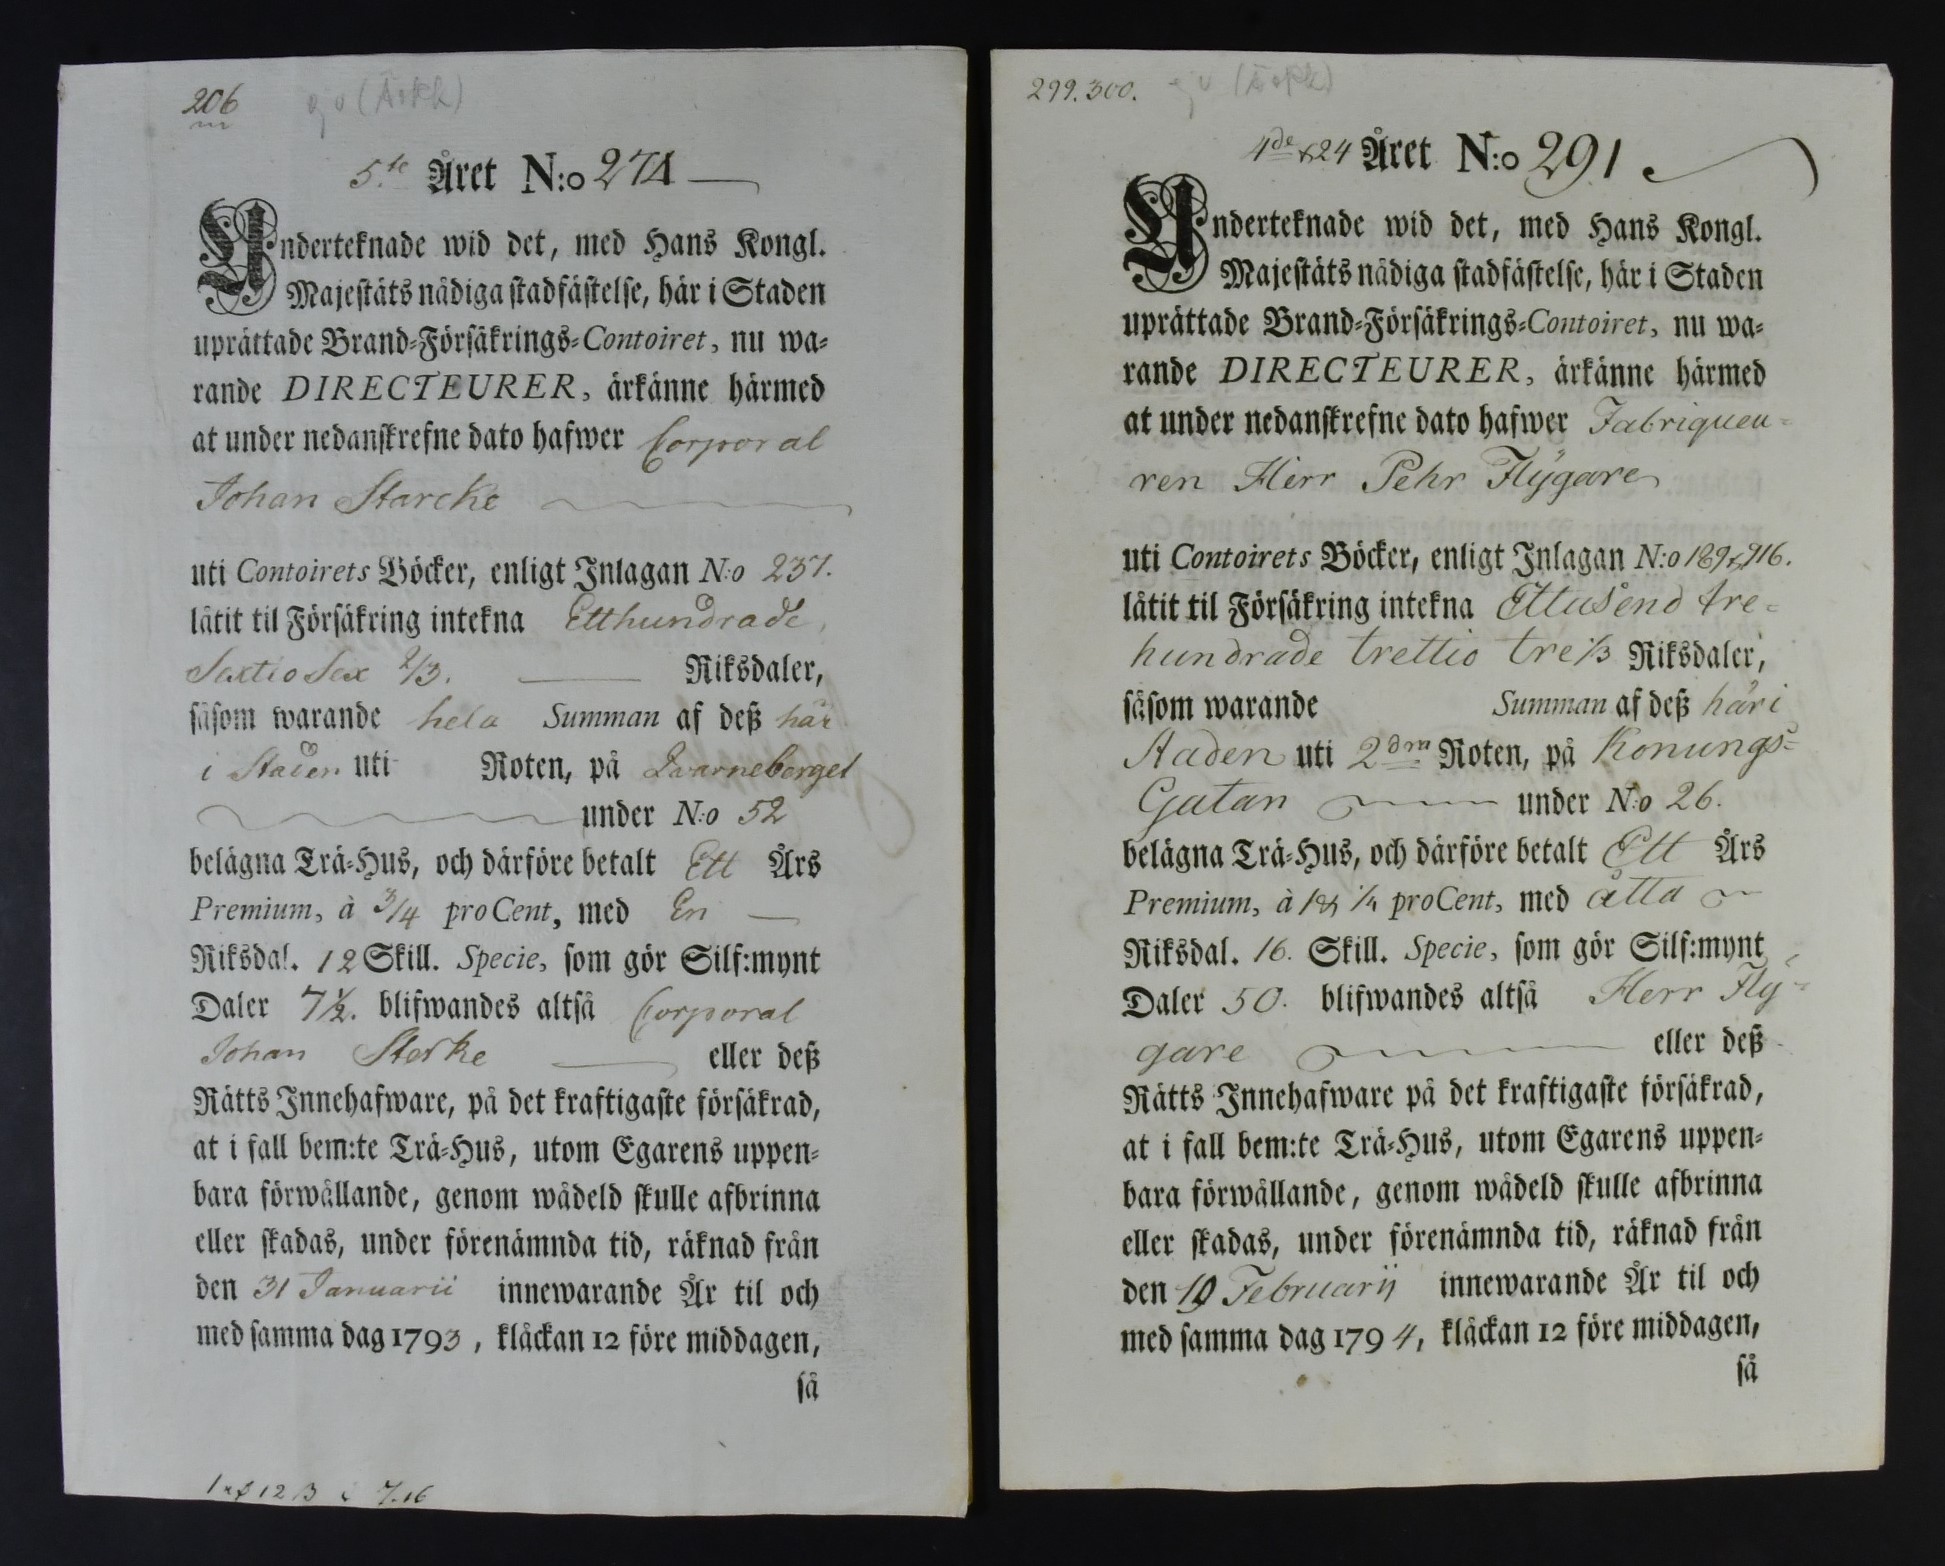 206
5.te Året N:o 274
Underteknade wid det, med Hans Kongl.
Majestäts nådiga stadfästelse, här i Staden
uprättade Brand-Försäkrings-Contoiret, nu wa-
rande DIRECTEURER, ärkänne härmed
at under nedanskrefne dato hafwer Corporal
Johan Starcke
uti Contoirets Böcker, enligt Inlagan N:o 237.
låtit til Försäkring intekna Etthundrade
Sextio Sex 2/3. Riksdaler,
såsom warande hela Summan af deß här
i Staden uti Roten, på Qvarneberget
under N:o 52
belägna Trä-Hus, och därföre betalt Ett Års
Premium, à 3/4 pro Cent, med En
Riksdal. 12 Skill. Specie, som gör Silf:mynt
Daler 7 1/2. blifwandes altså Corporal
Johan Sterke eller deß
Rätts Innehafware, på det kraftigaste försäkrad,
at i fall bem:te Trä-Hus, utom Egarens uppen-
bara förwållande, genom wådeld skulle afbrinna
eller skadas, under förenämnda tid, räknad från
den 31 Januarii innewarande År til och
med samma dag 1793, klåckan 12 före middagen,
så
299.300.
4de & 24 Året N:o 291
Underteknade wid det, med Hans Kongl.
Majestäts nådiga stadfästelse, här i Staden
uprättade Brand-Försäkrings-Contoiret, nu wa-
rande DIRECTEURER, ärkänne härmed
at under nedanskrefne dato hafwer Fabriqueu-
ren Herr Pehr Flygare
uti Contoirets Böcker, enligt Inlagan N:o 189 & 716.
låtit til Försäkring intekna Ettusend tre-
hundrade trettio tre 1/3 Riksdaler,
såsom warande Summan af deß här i
Staden uti 2dra Roten, på Konungs-
Gatan under N:o 26.
belägna Trä-Hus, och därföre betalt Ett Års
Premium, à 1 & 1/4 pro Cent, med åtta
Riksdal. 16. Skill. Specie, som gör Silf:mynt
Daler 50. blifwandes altså Herr Fly-
gare eller deß
Rätts Innehafware på det kraftigaste försäkrad,
at i fall bem:te Trä-Hus, utom Egarens uppen-
bara förwållande, genom wådeld skulle afbrinna
eller skadas, under förenämnda tid, räknad från
den 19 Februarij innewarande År til och
med samma dag 1794, klåckan 12 före middagen,
så